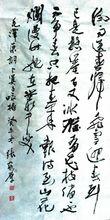 风雨送春归飞雪迎春到
已是悬崖百丈冰犹有花枝俏俏
也不争春只把春来报待到山花
烂漫时她在丛中笑
毛泽东词卜算子咏梅